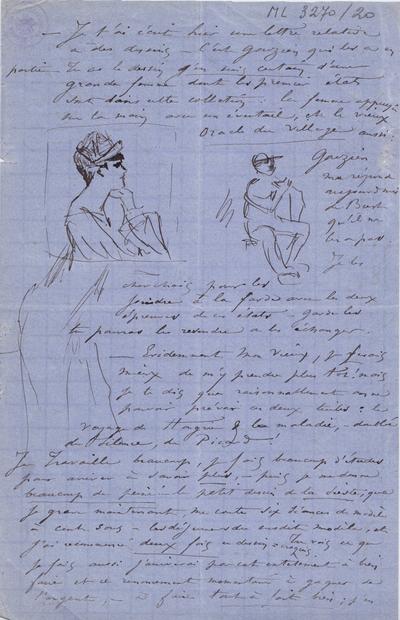 ML 3270/20
— Je t'ai écrit hier une lettre relative
à des dessins – c'est Gouzien qui les a en
partie – Tu as le dessin, j'en suis certain d'une
grande femme dont les premiers états
sont dans cette collection : la femme appuyée
sur la main avec un éventail, et le vieux
Oracle du village aussi.
Gouzien
me répond
aujourd'hui
qu'il ne
les a pas.
Je les
cherchais pour les
joindre à la garde avec les deux
épreuves de ces états garde les
tu pourras les revendre ou les échanger.
— Evidemment mon vieux, je ferais
mieux de m'y prendre plus tôt! mais
je te dis que raisonnablement on ne
pouvait prévoir ces deux tuiles : le
voyage de Hongrie & la maladie, doublée
du silence, de Picard!
Je travaille beaucoup, je fais beaucoup d'études
pour arriver à savoir , – puis je me donne
beaucoup de peine – le petit dessin de la Sieste, que
je grave maintenant, me coute six séances de modèle
à cent sous – les déjeuners du susdit modèle, et
j'ai recommencé deux fois ce dessin – Tu vois ce que
je fais aussi j'arriverai par cet entêtement à bien
faire et ce renoncement momentané à gagner de
l'argent, – à faire tout à fait bien ; j'en